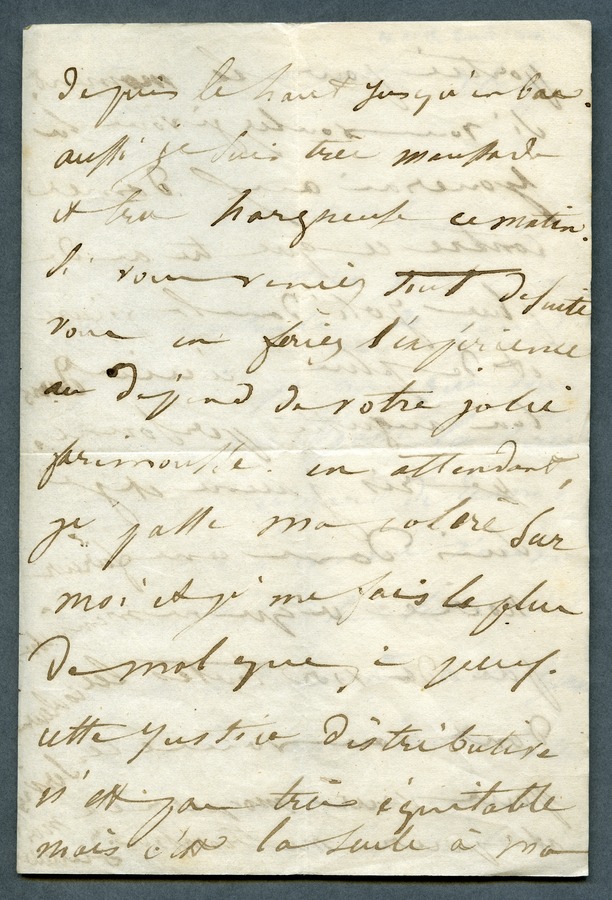 depuis le haut jusqu'en bas.
aussi je suis très maussade
et très hargneuse ce matin.
Si vous veniez tout de suite
vous en feriez l'expérience
au dépend de votre jolie
frimousse. en attendant,
je passe ma colère sur
moi et je me fais le plus
de mal que je peus.
cette justice distributive
n'est pas très équitable
mais c'est la seule à ma